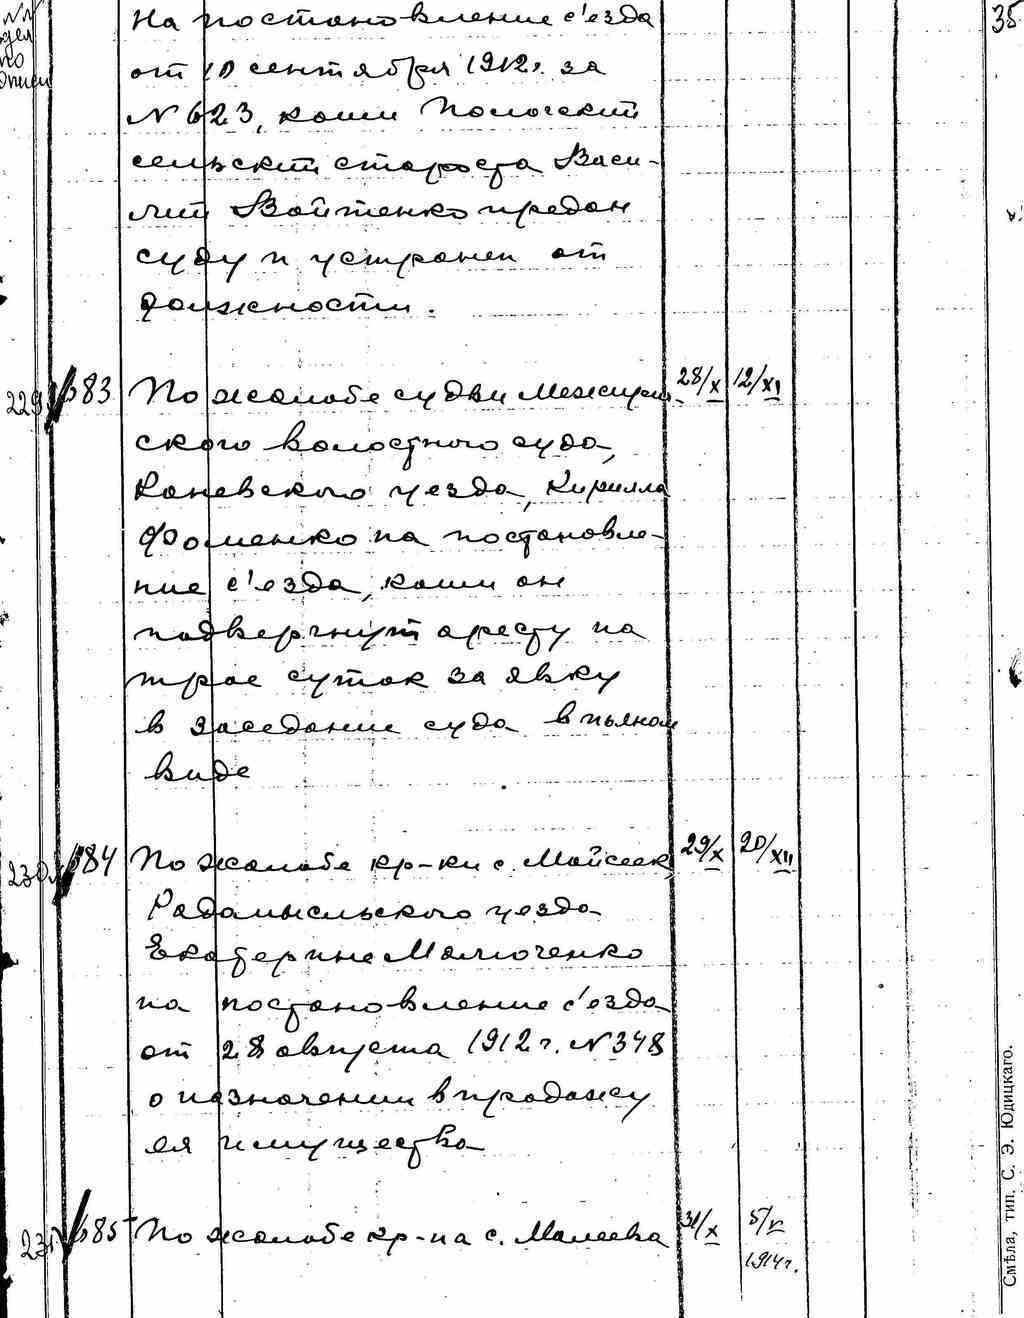 NN
дел
по
описи
35
на постановление с'езда
от 10 сентября 1912г. за
N 623, коим
сельский староста Васи-
лий Войтенко предан
суду и устранен от
должности.
229 683 По жалобе судьи 28/X 12/XI
ского волостного суда,
Каневского уезда, Кирилла
Фоменко на постановле-
ние с'езда, коим он
подвергнут аресту на
трое суток за явку
в заседание суда в пьяном
виде
230 684 По жалобе кр-ки с. Мойсеек, 29/X 20/XII
Радомысльского уезда
Екатерине
на постановление с'езда
от 28 августа 1912г. N 348
о назначении в продажу
ея имущества
231 685 По жалобе кр-на с. Малеевка 31/X 5/V
1914г.
Смѣла, тип. С. Э. Юдицкаго.